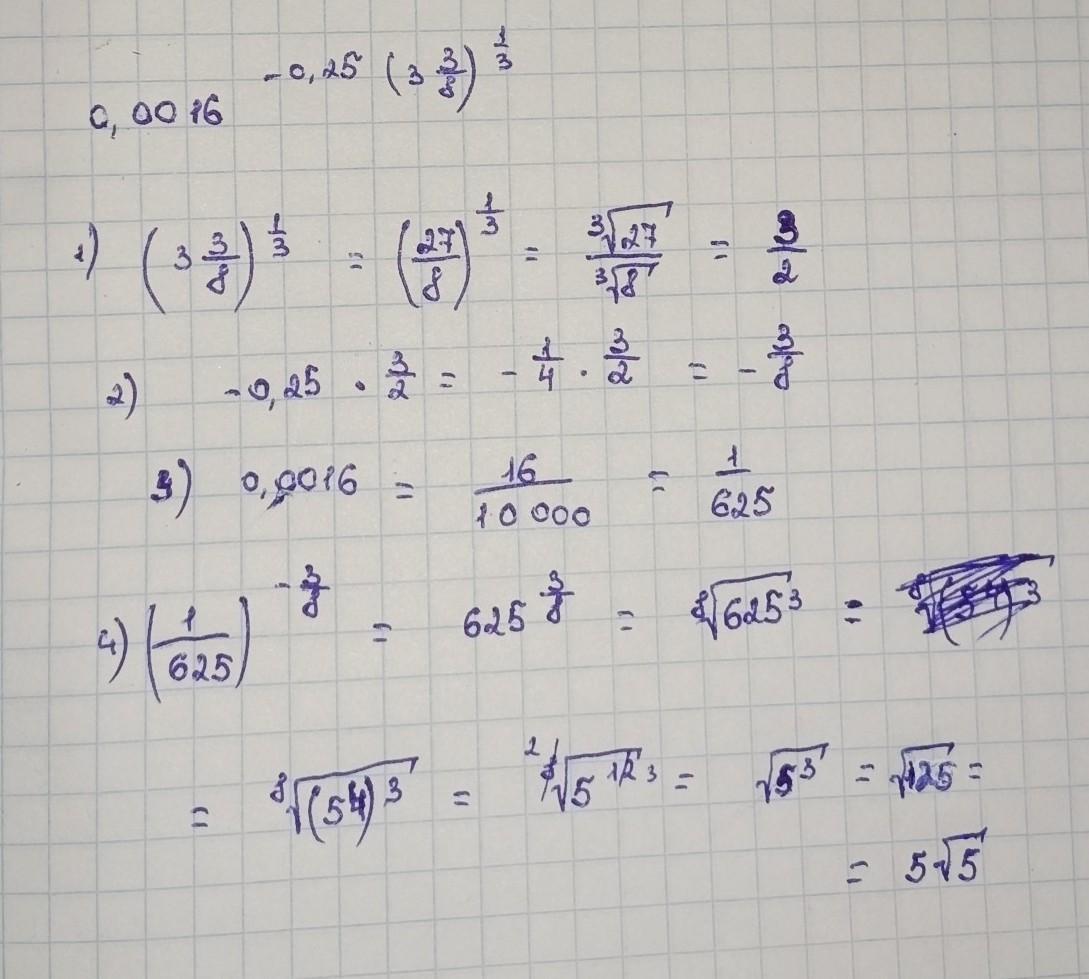 0,0016^{-0,25 (3 \frac{3}{8})^{\frac{1}{3}}}
1) (3 \frac{3}{8})^{\frac{1}{3}} = (\frac{27}{8})^{\frac{1}{3}} = \frac{\sqrt[3]{27}}{\sqrt[3]{8}} = \frac{3}{2}
2) -0,25 · \frac{3}{2} = -\frac{1}{4} · \frac{3}{2} = -\frac{3}{8}
3) 0,0016 = \frac{16}{10 000} = \frac{1}{625}
4) (\frac{1}{625})^{-\frac{3}{8}} = 625^{\frac{3}{8}} = \sqrt[8]{625^3} =
= \sqrt[8]{(5^4)^3} = \sqrt[8]{5^{12}} = \sqrt{5^3} = \sqrt{125} =
= 5\sqrt{5}